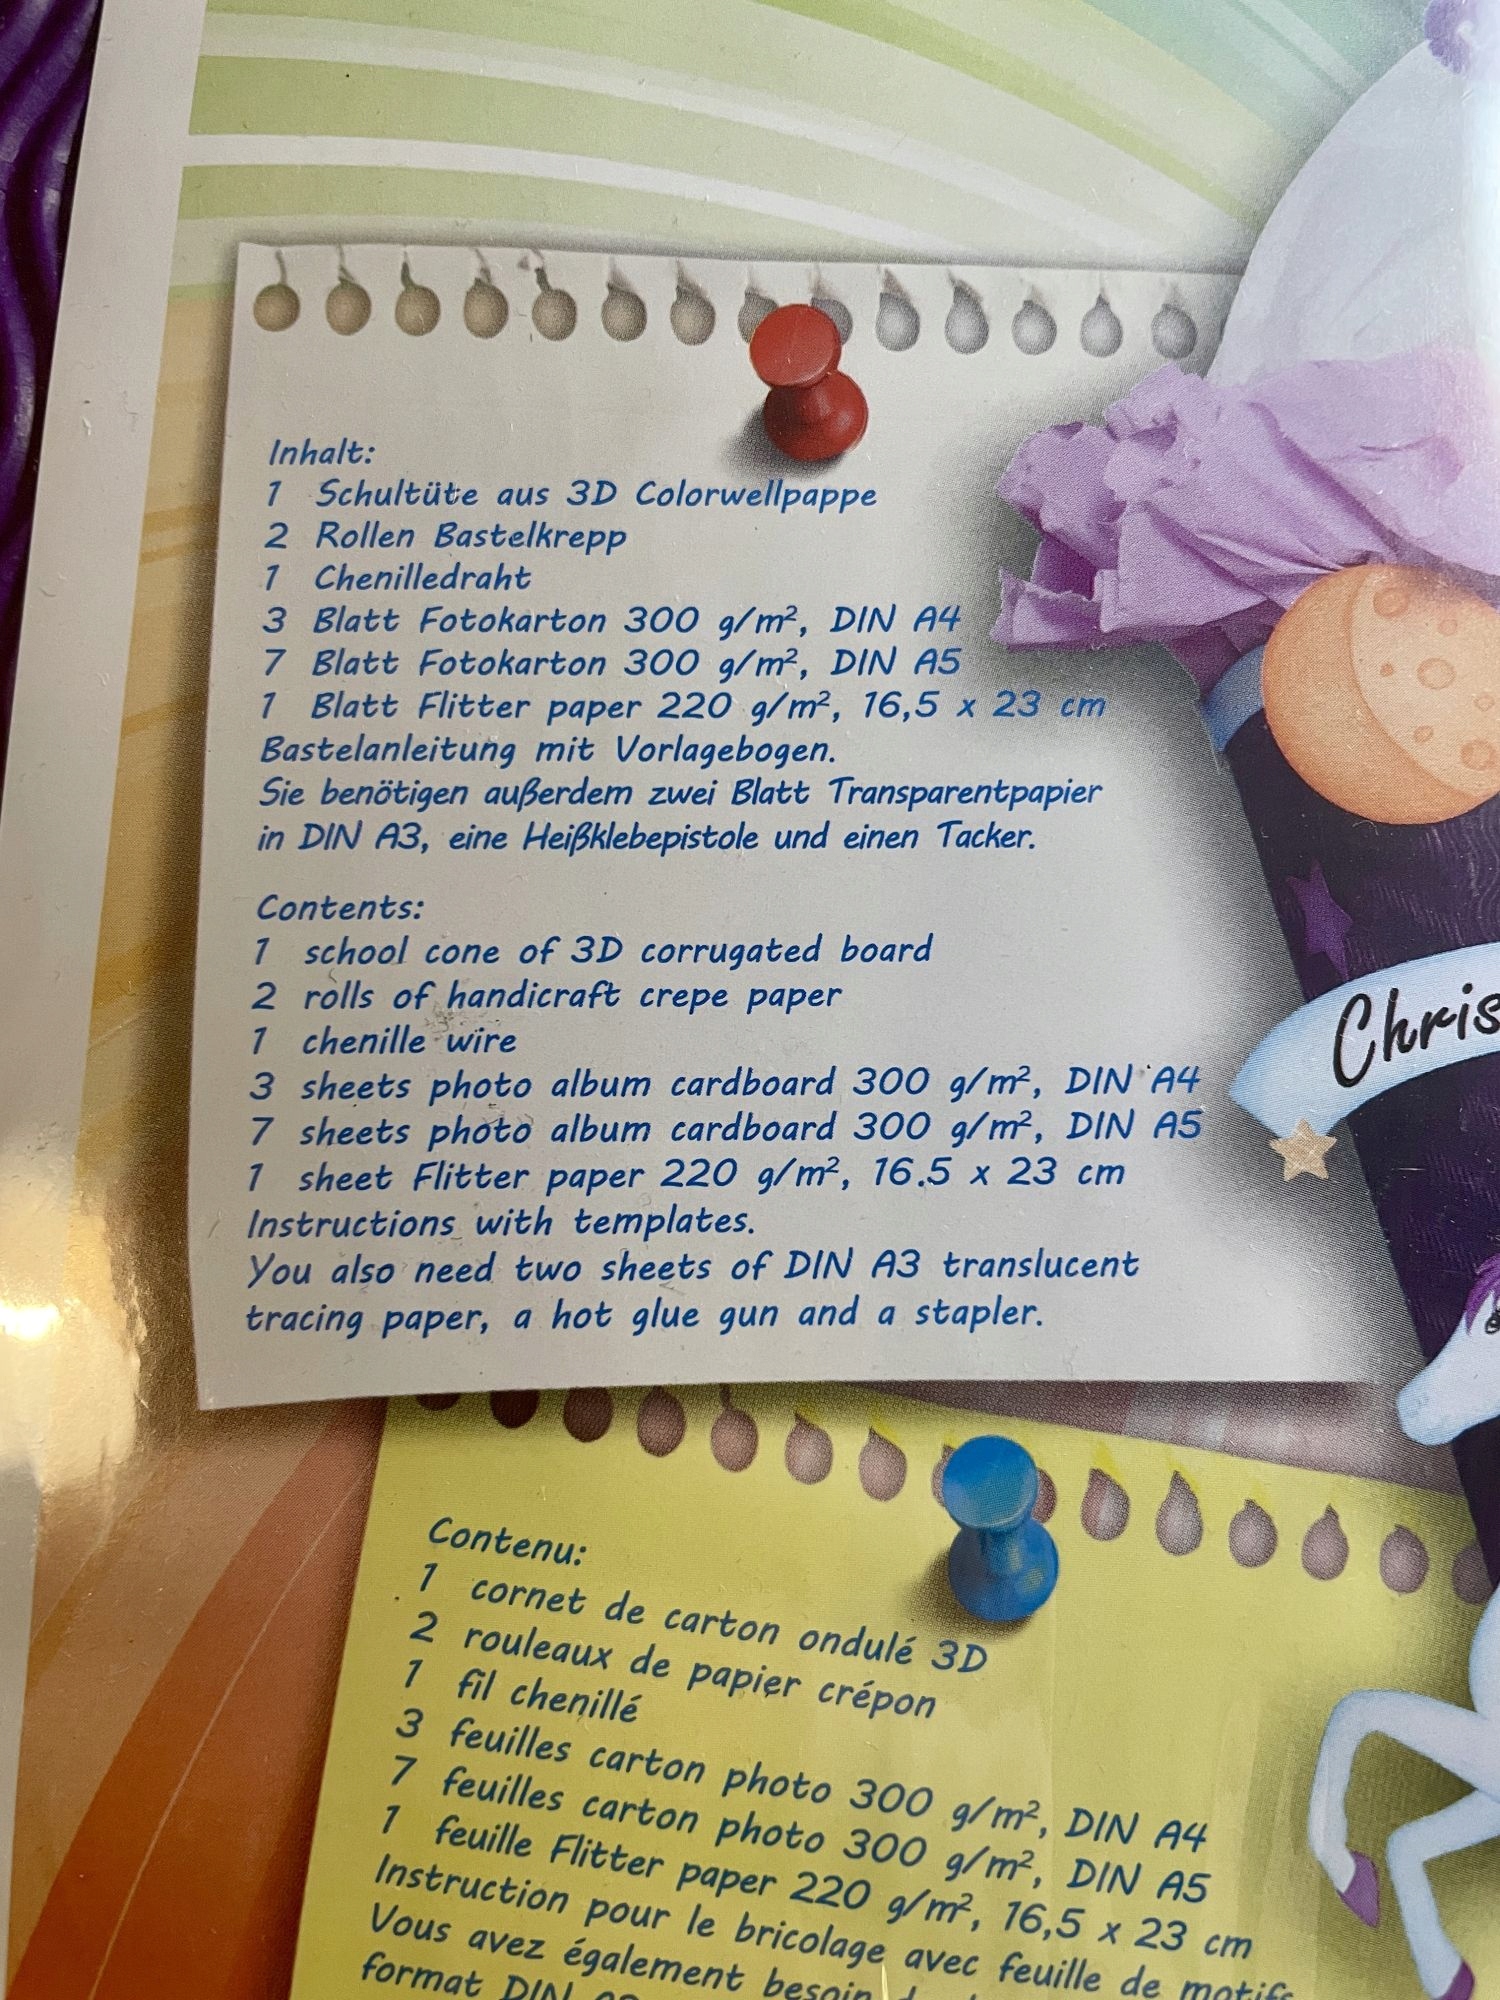 Inhalt:
1 Schultüte aus 3D Colorwellpappe
2 Rollen Bastelkrepp
1 Chenilledraht
3 Blatt Fotokarton 300 g/m², DIN A4
7 Blatt Fotokarton 300 g/m², DIN A5
1 Blatt Flitter paper 220 g/m², 16,5 x 23 cm
Bastelanleitung mit Vorlagebogen.
Sie benötigen außerdem zwei Blatt Transparentpapier
in DIN A3, eine Heißklebepistole und einen Tacker.
Contents:
1 school cone of 3D corrugated board
2 rolls of handicraft crepe paper
1 chenille wire
3 sheets photo album cardboard 300 g/m², DIN A4
7 sheets photo album cardboard 300 g/m², DIN A5
1 sheet Flitter paper 220 g/m², 16.5 x 23 cm
Instructions with templates.
You also need two sheets of DIN A3 translucent
tracing paper, a hot glue gun and a stapler.
Chris
Contenu:
1 cornet de carton ondulé 3D
2 rouleaux de papier crépon
1 fil chenillé
3 feuilles carton photo 300 g/m², DIN A4
7 feuilles carton photo 300 g/m², DIN A5
1 feuille Flitter paper 220 g/m², 16,5 x 23 cm
Instruction pour le bricolage avec feuille de motifs
Vous avez également besoin
format DIN